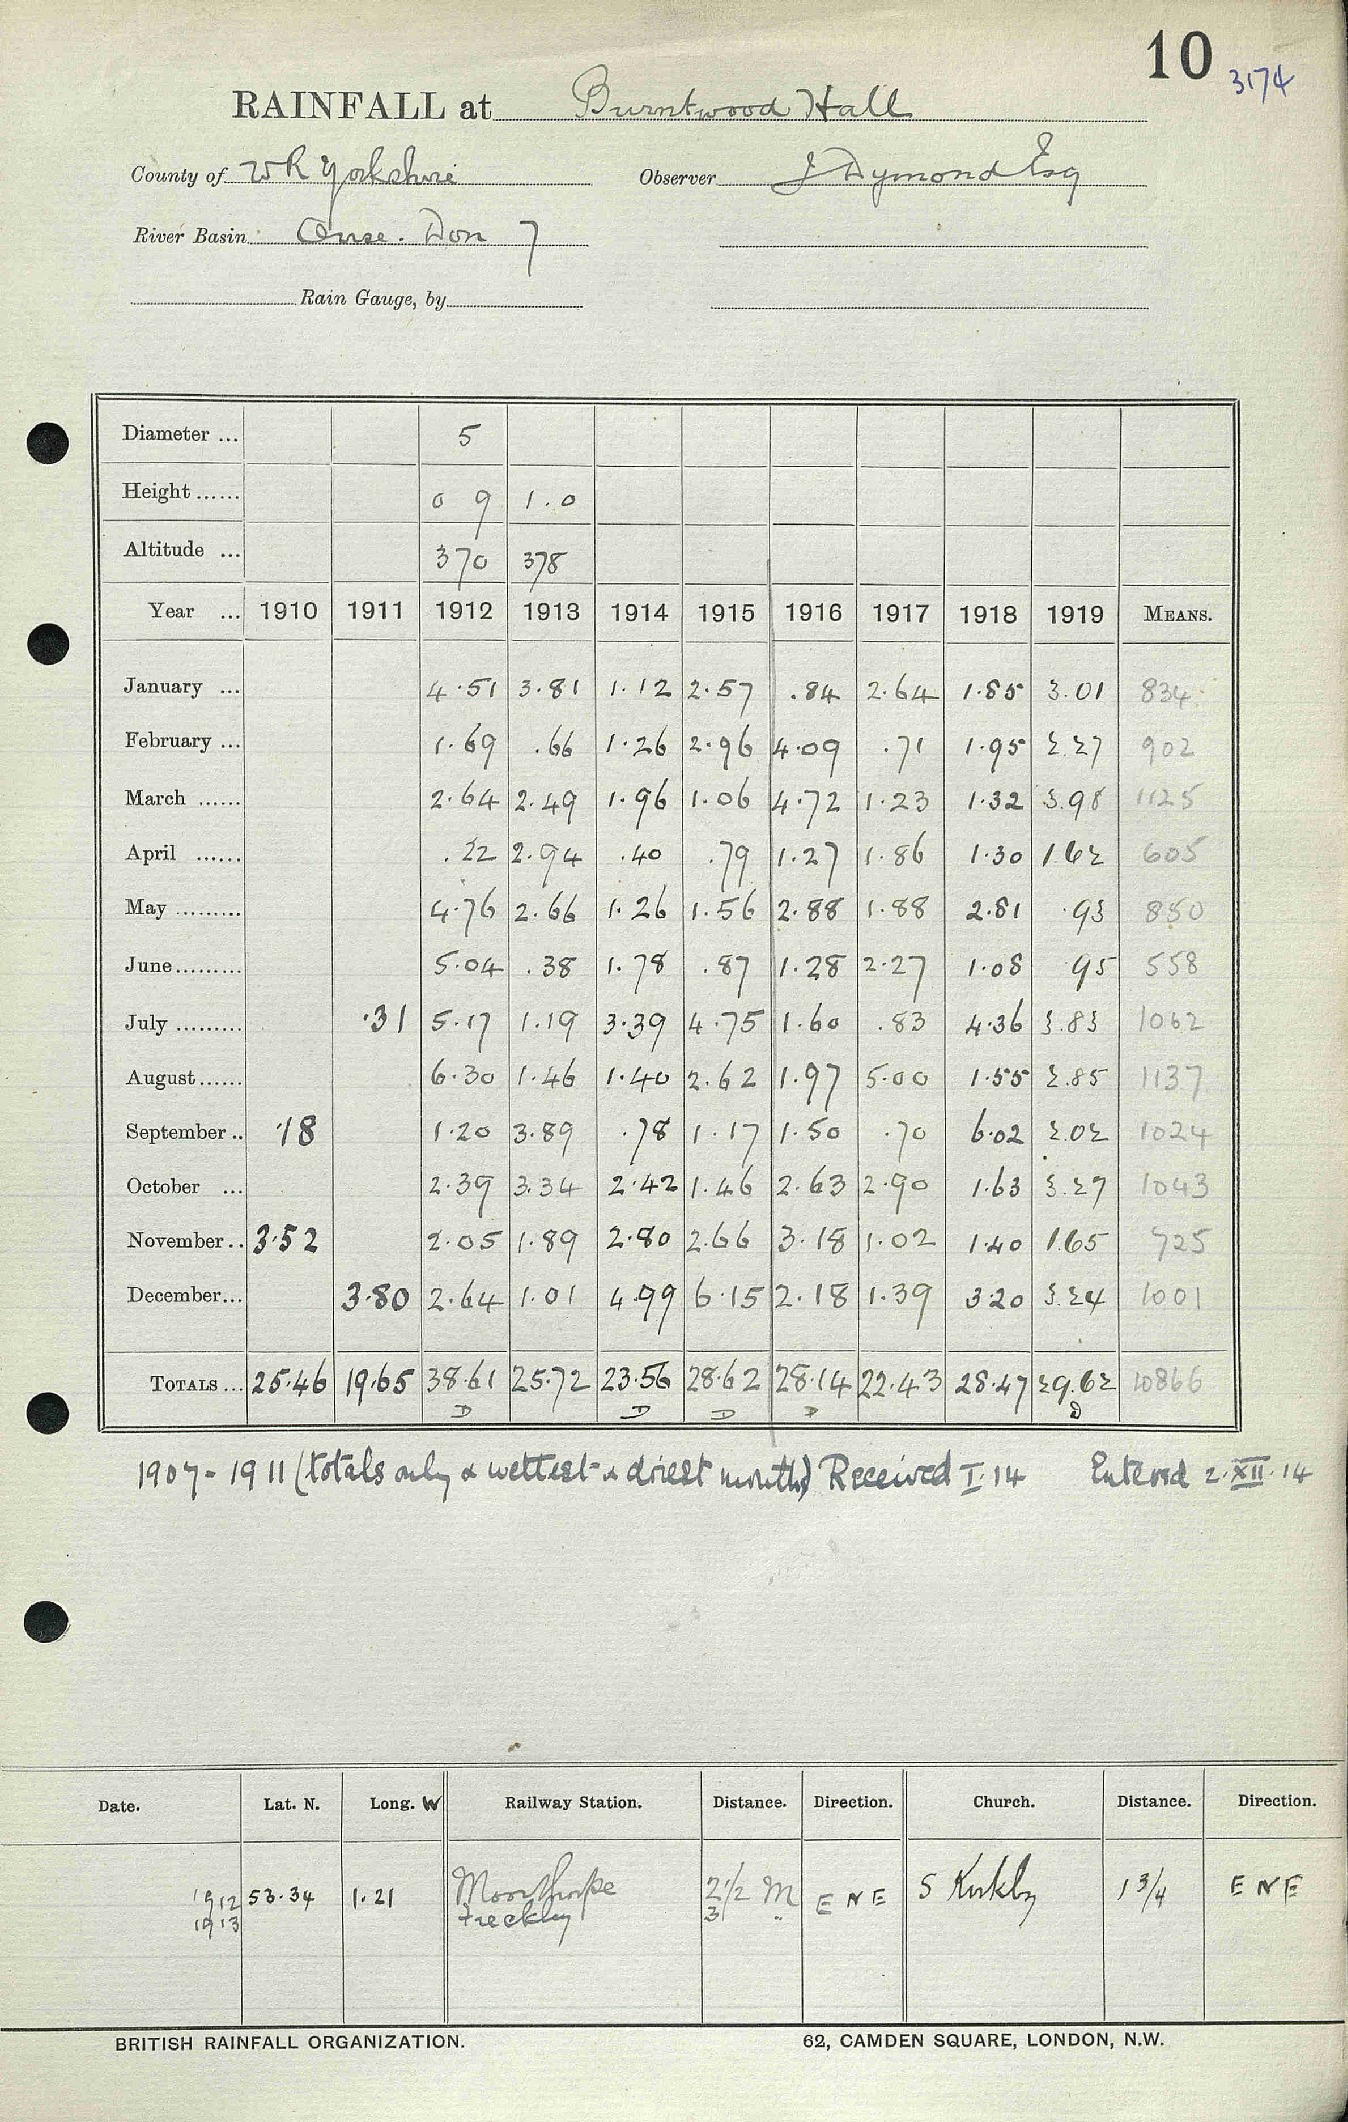 10
3174
RAINFALL at Burntwood Hall
County of W R Yorkshire Observer J Dymond Esq
River Basin Ouse. Don 7
Rain Gauge, by
Diameter ... 5
Height ...... 0 9 1.0
Altitude ... 370 378
Year ... 1910 1911 1912 1913 1914 1915 1916 1917 1918 1919 MEANS.
January ... 4.51 3.81 1.12 2.57 .84 2.64 1.85 3.01 834
February ... 1.69 .66 1.26 2.96 4.09 .71 1.95 2.27 902
March ...... 2.64 2.49 1.96 1.06 4.72 1.23 1.32 3.98 1125
April ...... .22 2.94 .40 .79 1.27 1.86 1.30 1.62 605
May ......... 4.76 2.66 1.26 1.56 2.88 1.88 2.81 .93 850
June......... 5.04 .38 1.78 .87 1.28 2.27 1.08 95 558
July ......... .31 5.17 1.19 3.39 4.75 1.60 .83 4.36 3.83 1062
August...... 6.30 1.46 1.40 2.62 1.97 5.00 1.55 2.85 1137
September .. .18 1.20 3.89 .78 1.17 1.50 .70 6.02 2.02 1024
October ... 2.39 3.34 2.42 1.46 2.63 2.90 1.63 3.27 1043
November .. 3.52 2.05 1.89 2.80 2.66 3.18 1.02 1.40 1.65 725
December... 3.80 2.64 1.01 4.99 6.15 2.18 1.39 3.20 3.24 1001
TOTALS ... 25.46 19.65 38.61 25.72 23.56 28.62 28.14 22.43 28.47 29.62 10866
D D D D D
1907-1911 (totals only & wettest & driest months) Received I.14 Entered 2.XII.14
Date. Lat. N. Long. W Railway Station. Distance. Direction. Church. Distance. Direction.
1912 53.34 1.21 Moorthorpe 2½ M E N E S Kirkby 1¾ E N E
1913 3 "
BRITISH RAINFALL ORGANIZATION. 62, CAMDEN SQUARE, LONDON, N.W.